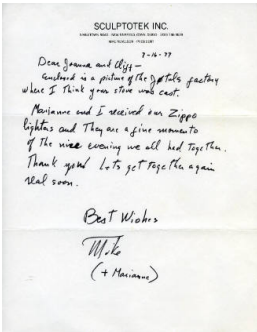 SCULPTOTEK INC.
7-16-77
Dear Joanna and Cliff—
Enclosed is a picture of the Jøtuls factory
where I think your stove was cast.
Marianne and I received our Zippo
lighters and They are a fine momento
of the nice evening we all had Together.
Thank you! Lets get Together again
real soon.
Best Wishes
Mike
(+ Marianne)